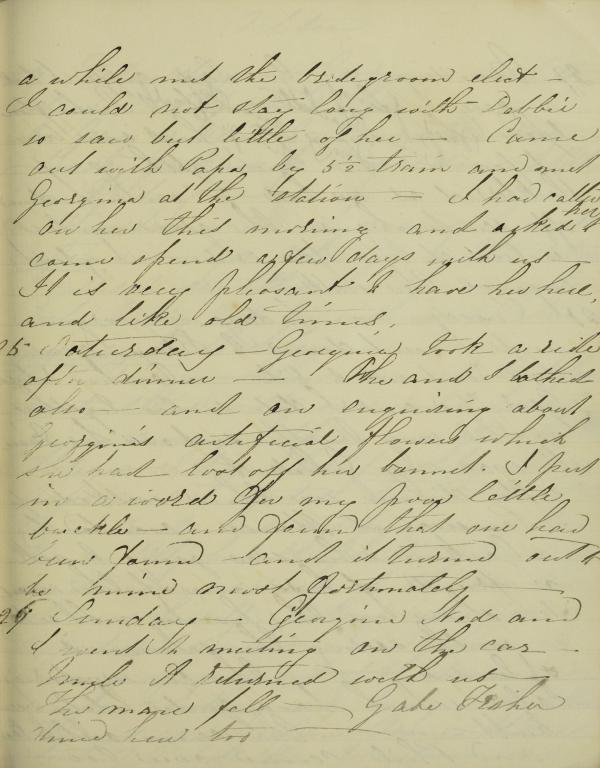 a while met the bridegroom elect —
I could not stay long with Debbie
so saw but little of her — Came
out with Papa by 5½ train and met
Georgina at the station — I had called
on her this morning and asked her to
come spend a few days with us —
It is very pleasant to have her here,
and like old times.
25 Saturday — Georgina took a ride
after dinner — She and I bathed
also — and on enquiring about
Georgine's artificial flowers which
she had lost off her bonnet. I put
in a word for my poor little
buckle — and found that one had
been found — and it turned out to
be mine most fortunately —
26 Sunday — Georgine Ned and
I went to meeting on the car —
Uncle A returned with us —
The mare fell — Gabe Fisher
dined here too —